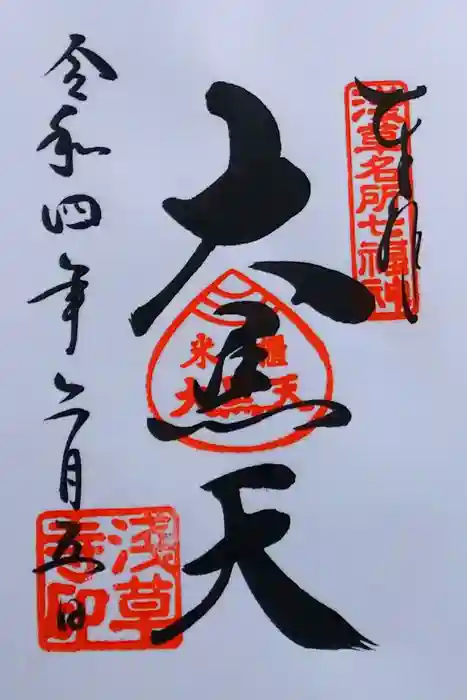 奉拝
浅草名所七福神
大黒天
米櫃
大黒天
令和四年六月五日
浅草寺印